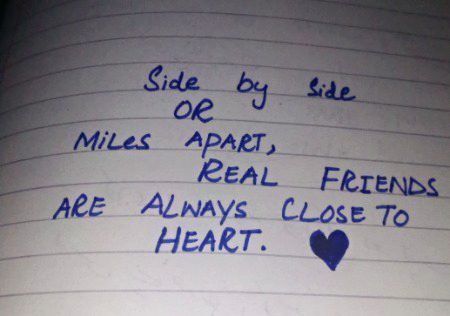 Side by side
OR
Miles APART,
REAL FRIENDS
ARE ALWAYS CLOSE TO
HEART.